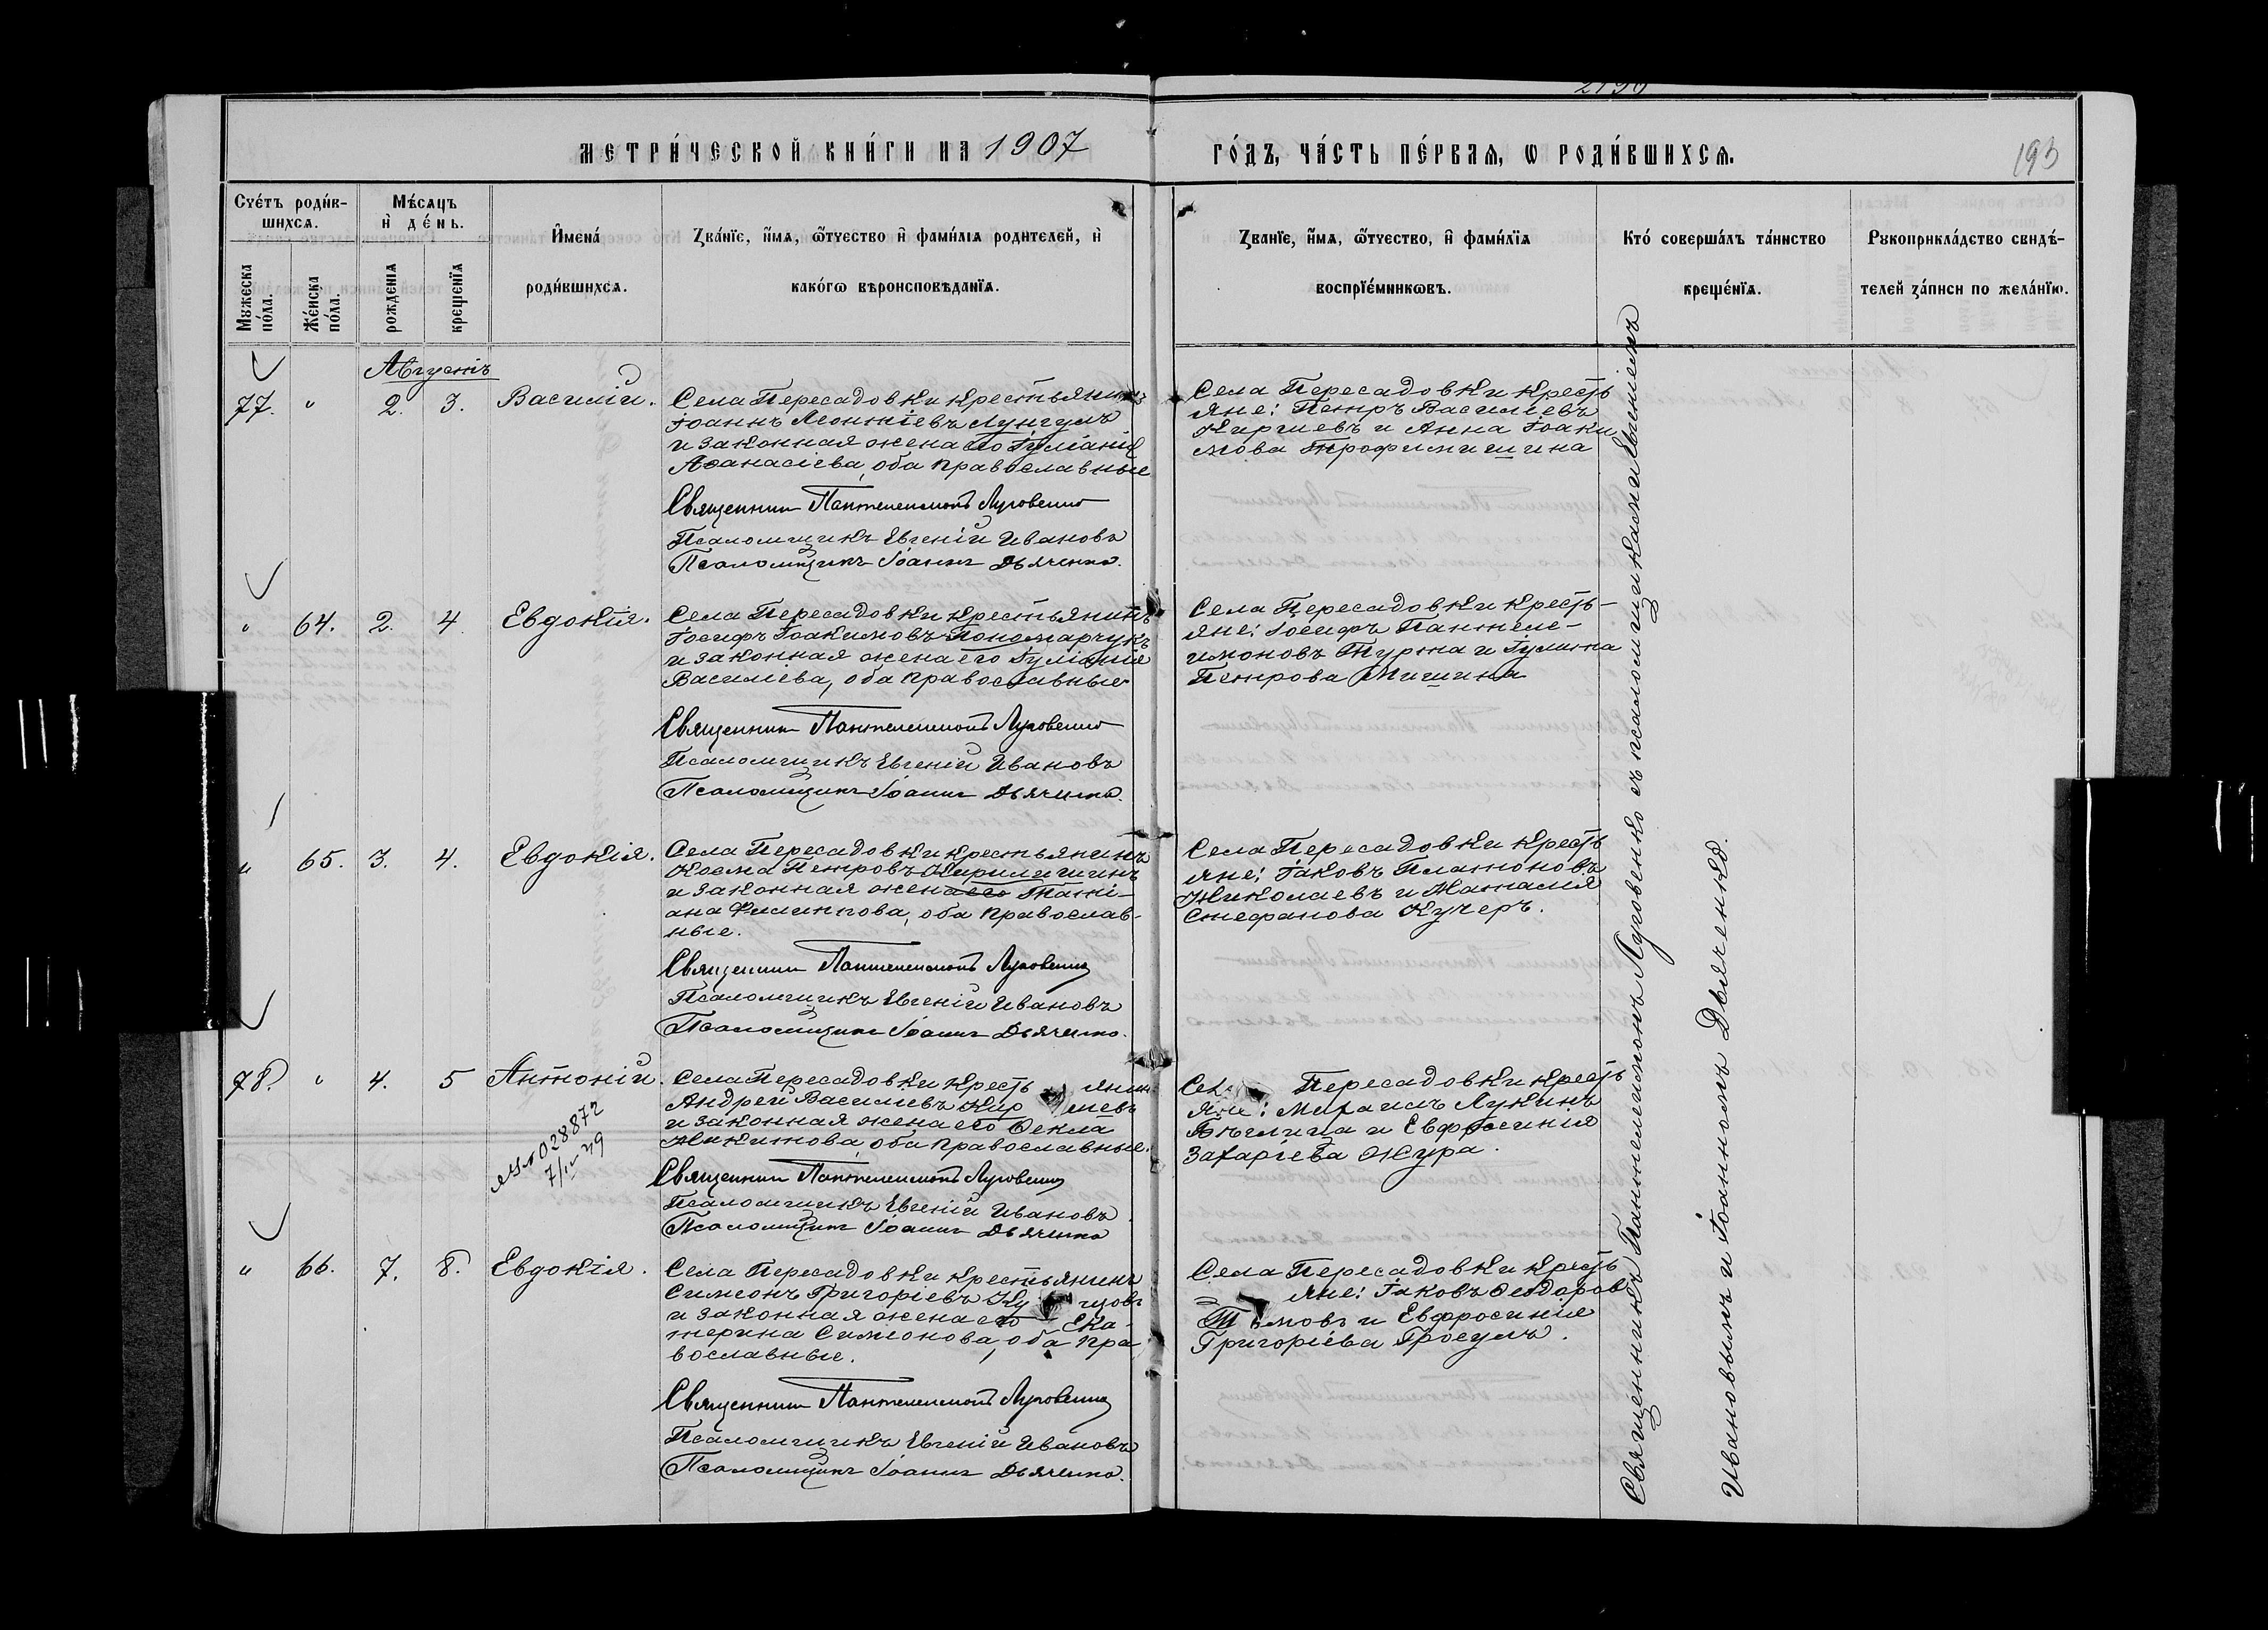 МЕТРИ́ЧЕСКОЙ КНИ́ГИ НА 1907
ГО́ДЪ, ЧА́СТЬ ПЕ́РВАѦ, Ѡ РОДИ́ВШИХСѦ.
193
Сче́тъ роди́в-
шихсѧ.
Мѣ́сѧцъ
и҆ де́нь.
Мꙋжеска
по́ла.
Же́нска
по́ла.
рожденїѧ
крещенїѧ
И҆мена́
роди́вшихсѧ.
Зва́нїе, и҆́мѧ, ѻ҆́тчество и҆ фамі́лїѧ родителей, и҆
како́гѡ вѣроисповѣданїѧ.
Зва́нїе, и҆́мѧ, ѻ҆́тчество, и҆ фамі́лїѧ
воспрїе́мникѡвъ.
Кто́ соверша́лъ та́инство
креще́нїѧ.
Рꙋкоприкла́дство свидѣ́-
телей за́писи по жела́нїю.
Августъ
77. " 2. 3. Василій.
Села Пересадовки крестьянинъ
Іоаннъ Леонтіевъ Лунгулъ
и законная жена его Іуліанія
Аѳанасіева, оба православные
Священникъ Пантелеимонъ Луговенко
Псаломщикъ Евгеній Ивановъ
Псаломщикъ Іоаннъ Дьяченко.
Села Пересадовки кресть
яне: Петръ Василіевъ
Киргиевъ и Анна Іоаки
мова Трофимишина
" 64. 2. 4 Евдокія.
Села Пересадовки крестьянинъ
Іосифъ Іоакимовъ Пономарчукъ
и законная жена его Іуліанія
Василіева, оба православные
Священникъ Пантелеимонъ Луговенко
Псаломщикъ Евгеній Ивановъ
Псаломщикъ Іоаннъ Дьяченко.
Села Пересадовки кресть-
яне: Іосифъ Пантеле-
имоновъ Турта и Іулитта
Петрова Мишина
" 65. 3. 4. Евдокія.
Села Пересадовки крестьянинъ
Косма Петровъ
и законная жена его Тати-
ана Филиппова, оба православ-
ные.
Священникъ Пантелеимонъ Луговенко
Псаломщикъ Евгеній Ивановъ
Псаломщикъ Іоаннъ Дьяченко.
Села Пересадовки кресть
яне: Іаковъ Платоновъ
Николаевъ и Наталія
Стефанова Кучеръ.
78. " 4. 5 Антоній.
028872
Села Пересадовки кресть янин
Андрей Василіевъ Кир иевъ
и законная жена его Ѳекла
Никитова, оба православные.
Священникъ Пантелеимонъ Луговенко
Псаломщикъ Евгеній Ивановъ
Псаломщикъ Іоаннъ Дьяченко
Сел Пересадовки кресть
яне: Михаилъ Лукинъ
и Евфросинія
Захаріева Жура.
" 66. 7. 8. Евдокія.
Села Пересадовки крестьянинъ
Симеонъ Григоріевъ Ку цовъ
и законная жена его Ека-
терина Симеонова, оба пра
вославные.
Священникъ Пантелеимонъ Луговенко
Псаломщикъ Евгеній Ивановъ
Псаломщикъ Іоаннъ Дьяченко.
Села Пересадовки кресть
яне: Іаковъ Ѳеодоров
и Евфросинія
Григоріева Гросулъ.
Священникъ Пантелеимонъ Луговенко съ псаломщиками Евгеніемъ
Ивановымъ и Іоанномъ Дьяченко.